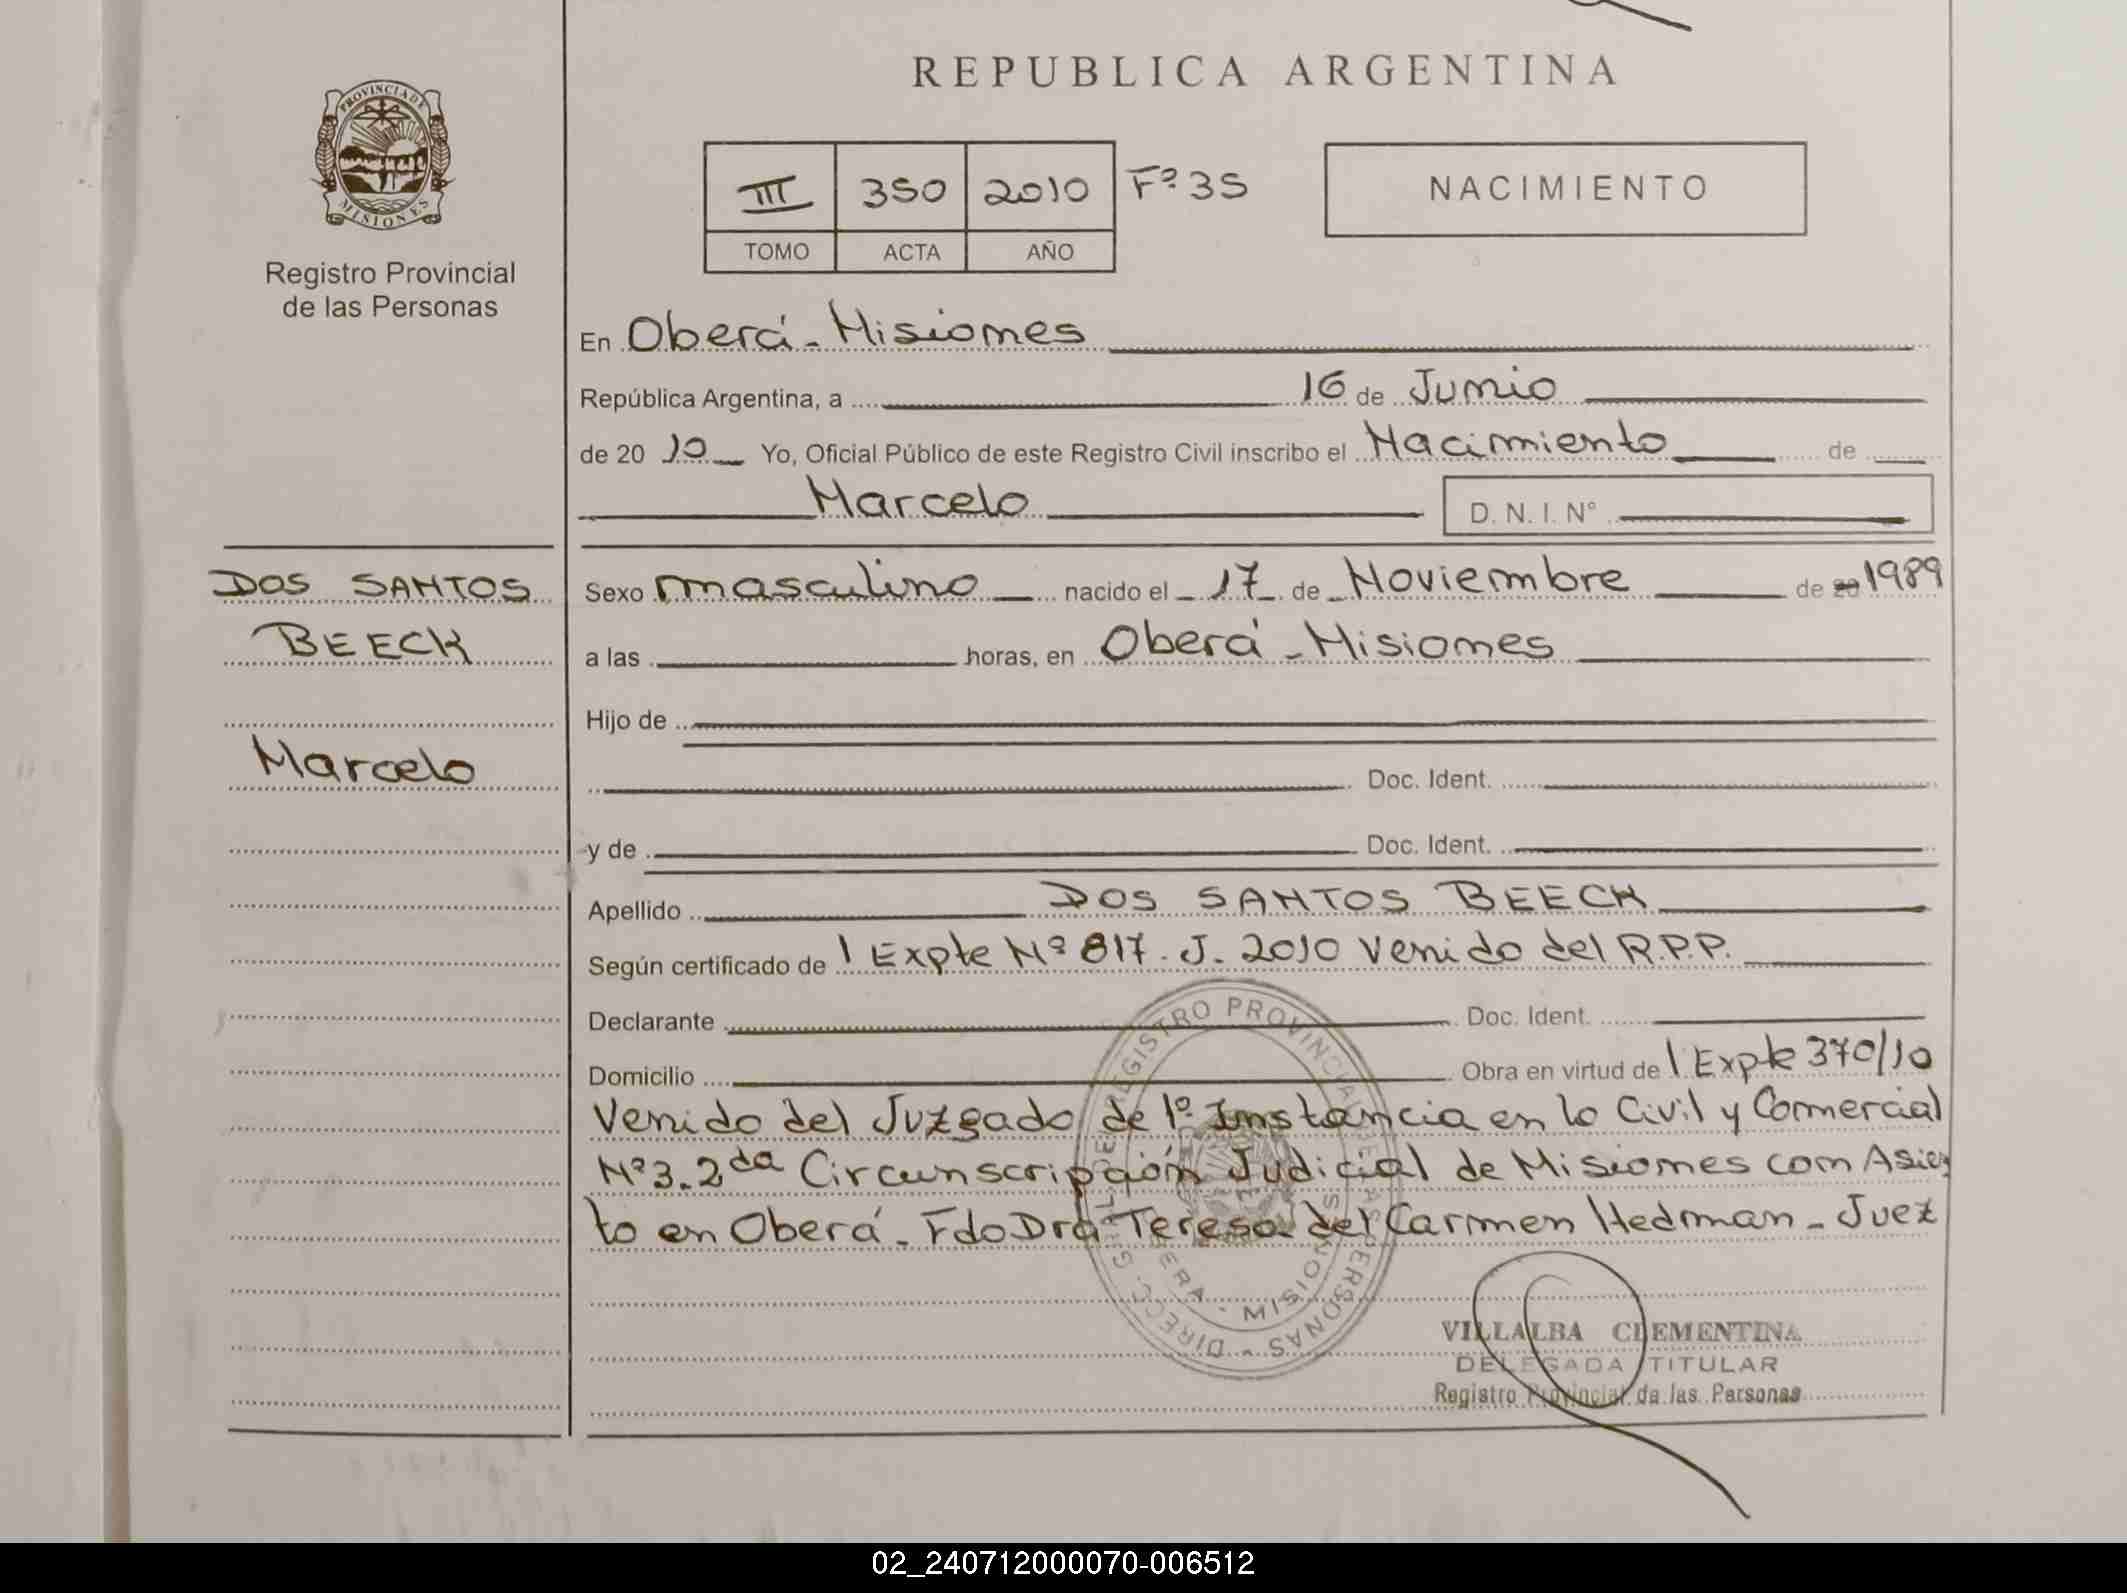 REPUBLICA ARGENTINA
PROVINCIA DE
MISIONES
Registro Provincial
de las Personas
III 350 2010 Fº 35
TOMO ACTA AÑO
NACIMIENTO
En Oberá - Misiones
República Argentina, a 16 de Junio
de 20 10 Yo, Oficial Público de este Registro Civil inscribo el Nacimiento de
Marcelo D. N. I. Nº
DOS SANTOS
BEECK
Marcelo
Sexo masculino nacido el 17 de Noviembre de 20 1989
a las horas, en Oberá - Misiones
Hijo de
Doc. Ident.
y de Doc. Ident.
Apellido DOS SANTOS BEECK
Según certificado de 1 Expte Nº 817. J. 2010 Venido del R.P.P.
Declarante Doc. Ident.
Domicilio Obra en virtud de 1 Expte 370/10
Venido del Juzgado de 1º Instancia en lo Civil y Comercial
Nº3. 2da Circunscripción Judicial de Misiones con Asien
to en Oberá - Fdo Dra Teresa del Carmen Hedman - Juez
DIRECC. GRAL. DE REGISTRO PROVINCIAL DE LAS PERSONAS
OBERA - MISIONES
VILLALBA CLEMENTINA
DELEGADA TITULAR
Registro Provincial de las Personas
02_240712000070-006512